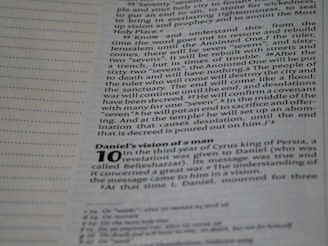 "Seventy "sevens"
ple and your holy city to finish
to put an end to sin, to atone for wickedness,
to bring in everlasting righteousness, to seal
up vision and prophecy and to anoint the Most
Holy Place.
"Know and understand this: from the
time the word goes out to restore and rebuild
Jerusalem until the Anointed One, the ruler,
comes, there will be seven "sevens", and sixty-
two "sevens". It will be rebuilt with streets and
a trench, but in times of trouble. 26After the
sixty-two "sevens", the Anointed One will be put
to death and will have nothing. The people of
the ruler who will come will destroy the city and
the sanctuary. The end will come like a flood:
war will continue until the end, and desolations
have been decreed. 27He will confirm a covenant
with many for one "seven". In the middle of the
"seven" he will put an end to sacrifice and offer-
ing. And at the temple he will set up an abom-
ination that causes desolation, until the end
that is decreed is poured out on him."
Daniel's vision of a man
10 In the third year of Cyrus king of Persia, a
revelation was given to Daniel (who was
called Belteshazzar). Its message was true and
it concerned a great war. The understanding of
the message came to him in a vision.
2At that time I, Daniel, mourned for three